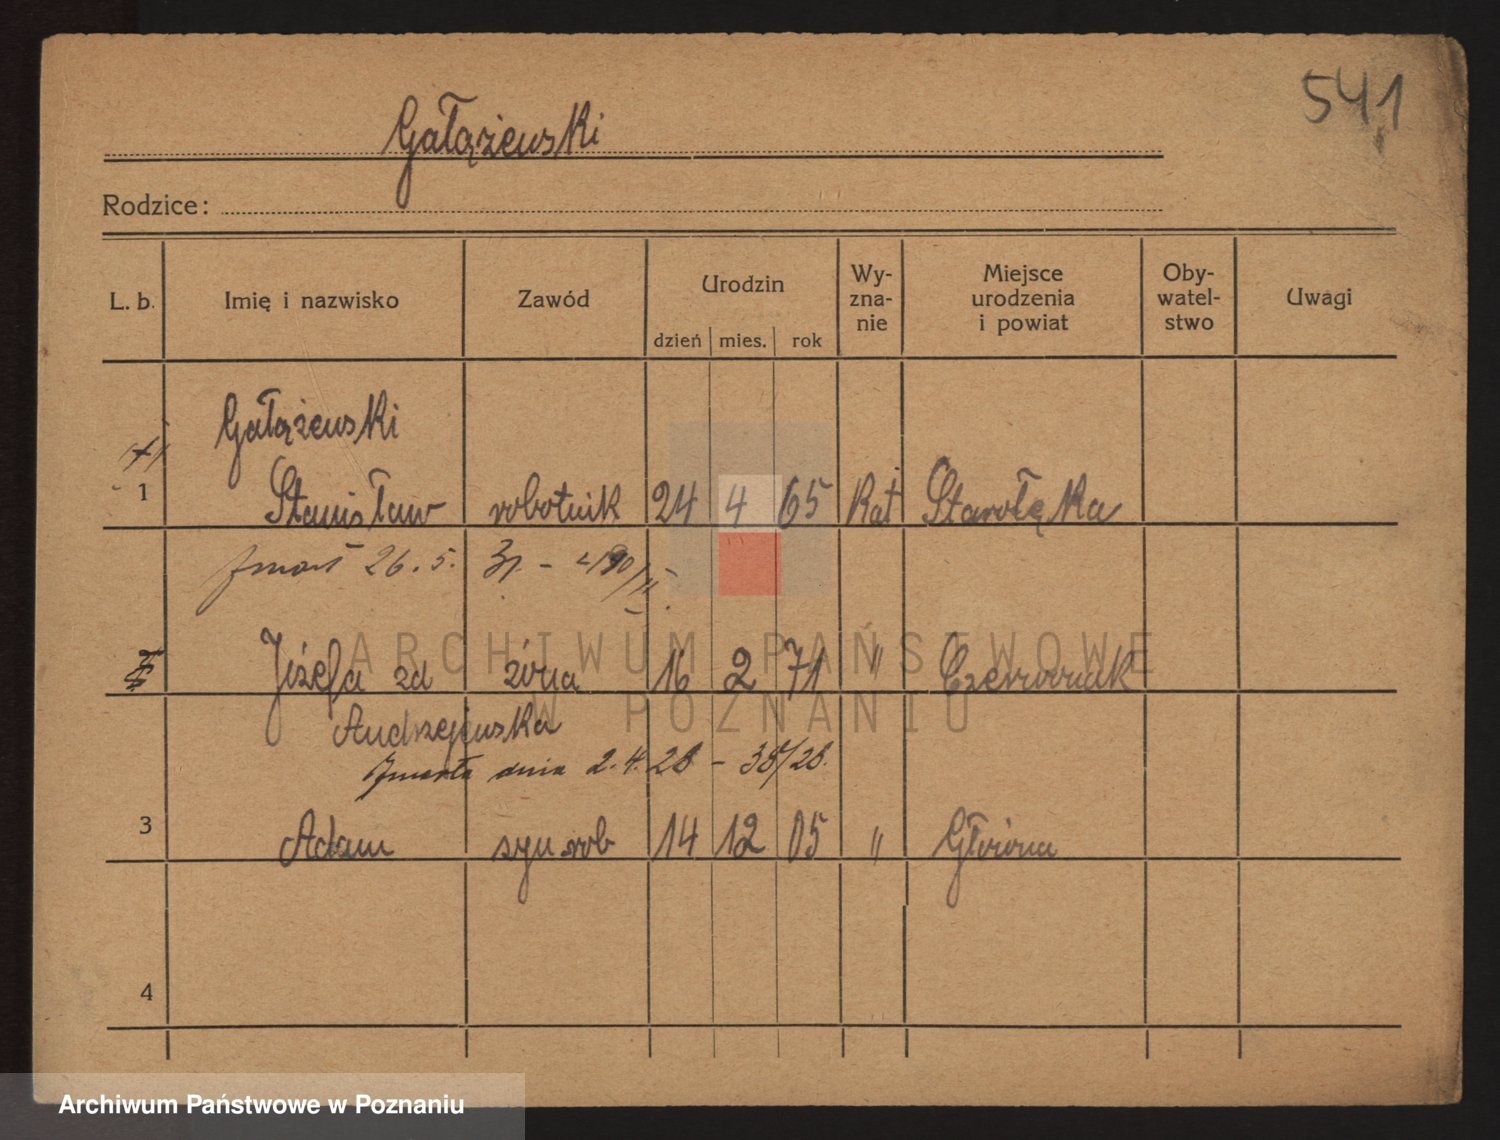 541
Gałążewski
Rodzice:
L. b. Imię i nazwisko Zawód Urodzin dzień mies. rok Wy-zna-nie Miejsce urodzenia i powiat Oby-watel-stwo Uwagi
Gałążewski
1 Stanisław robotnik 24 4 65 Kat Starołęka
zmarł 26.5.
Józefa zd żona 16 2 71 " Czerwonak
Andrzejewska
Zmarła dnia 2.4.28 – 38/28.
3 Adam syn rob 14 12 05 " Główna
4
ARCHIWUM PAŃSTWOWE
W POZNANIU
Archiwum Państwowe w Poznaniu